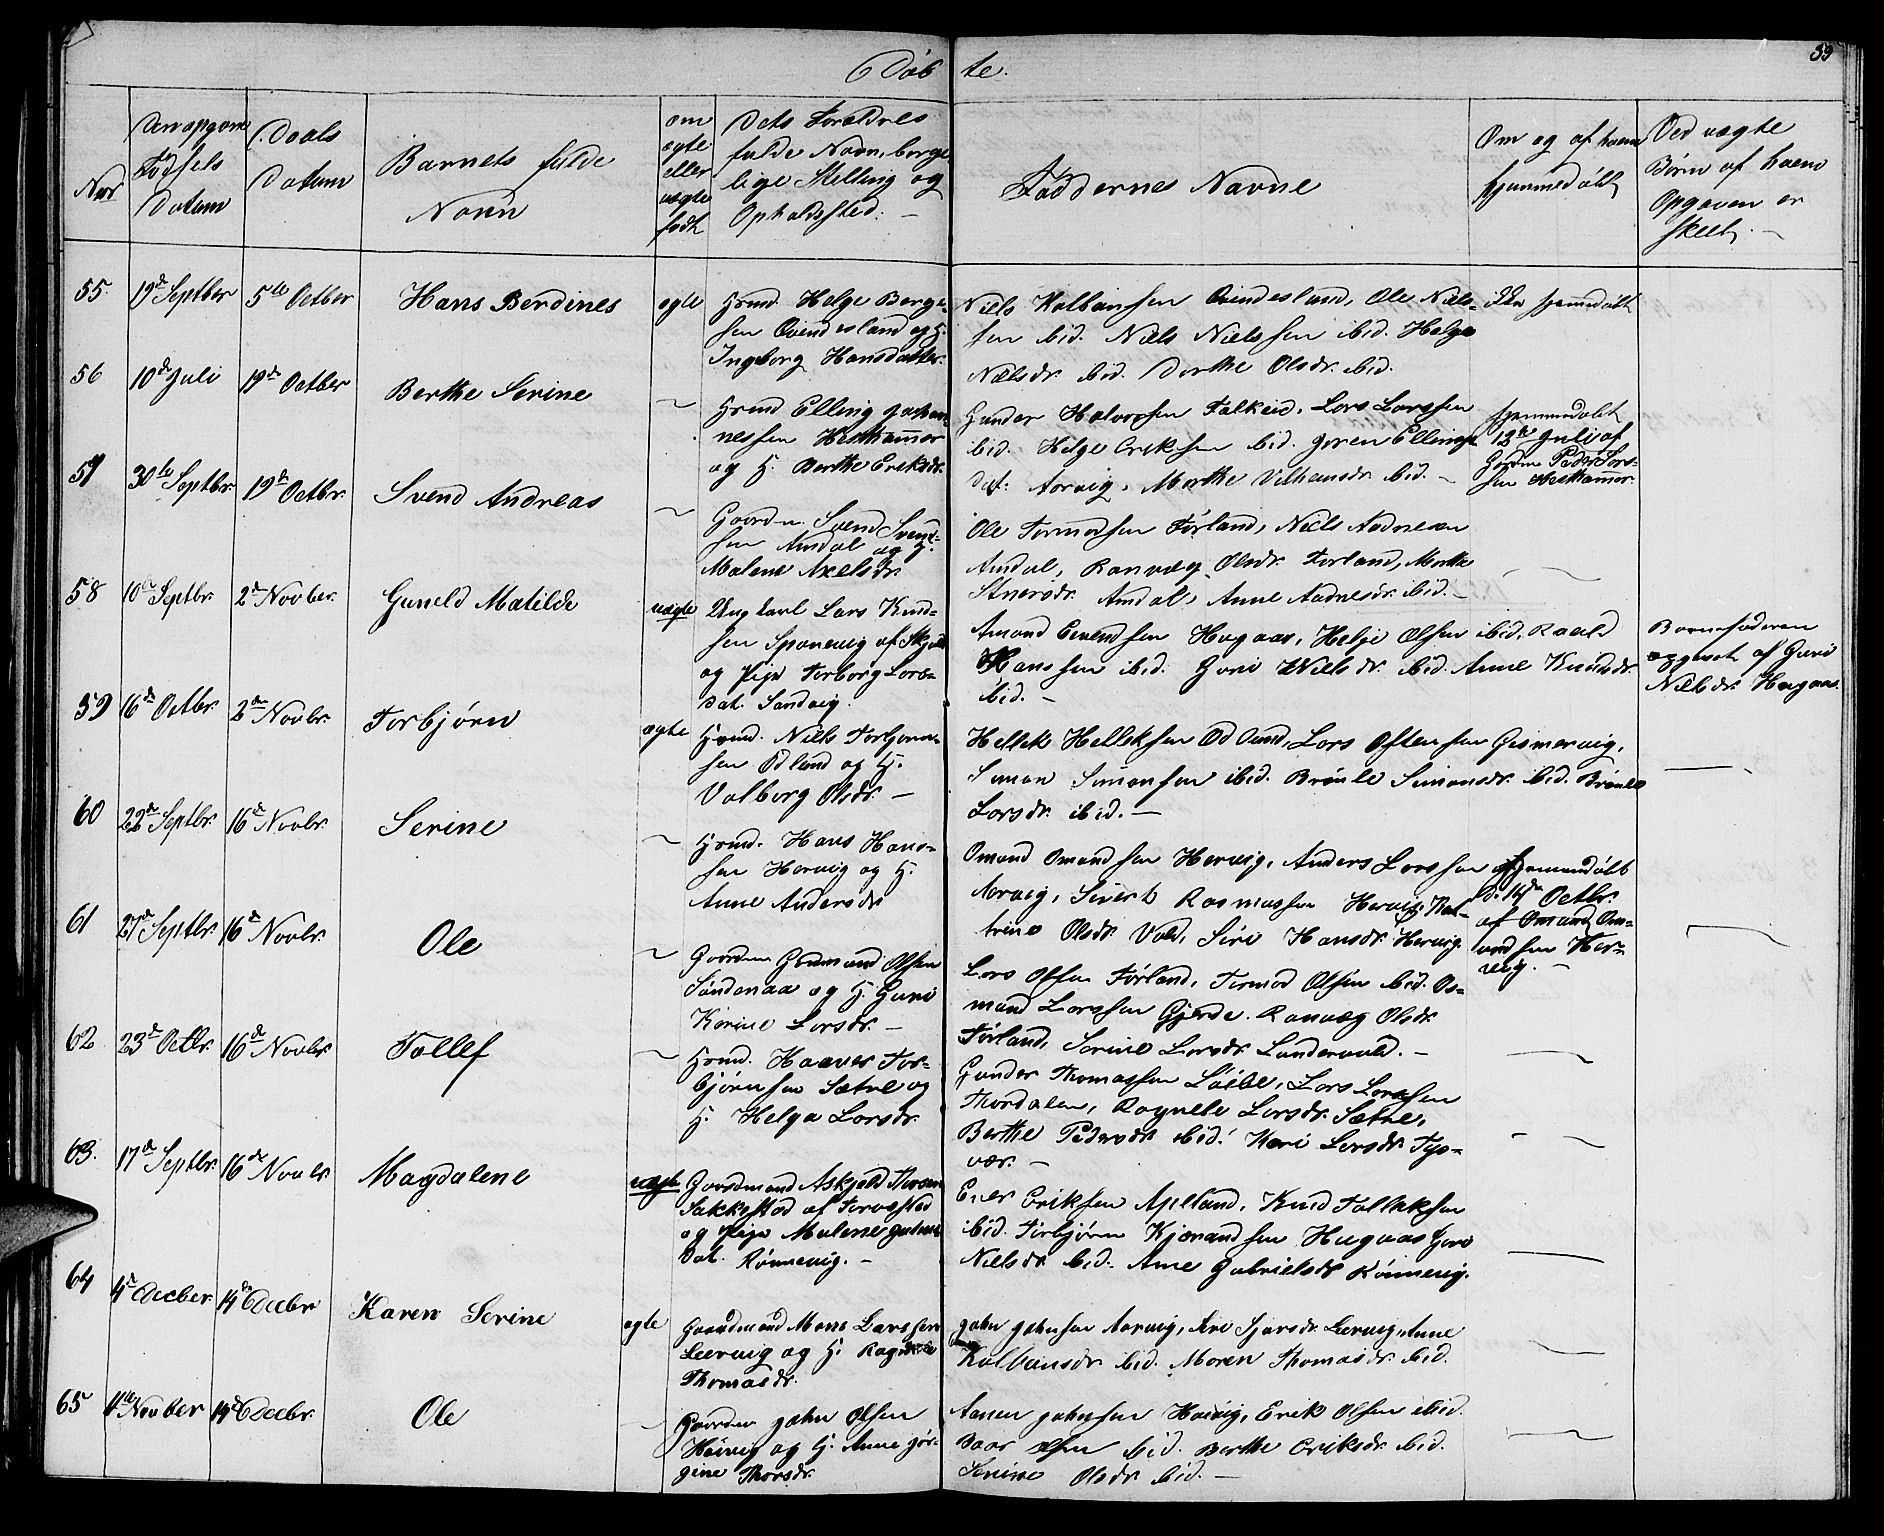 Døbte.
39
Nor
Den opgivne Fødsels Datum
Daabs Datum
Barnets fulde Navn
om ægte eller uægte født
Dets Forældres fulde Navn, borgelige Stilling og Opholdsted.
Faddernes Navne
Om og af hvem hjemmedøbt
Ved uægte Børn af hvem Opgaven er skeet.
55. 19de Septber 5te Octber Hans Berdines ægte
Hmd. Helge Berge-
sen Qvindesland og H.
Ingeborg Hansdatter.
Niels Kolbeinsen Qvindesland, Ole Niels-
sen ibid. Niels Nielssen ibid. Helga
Nielsdr. ibid. Dorthe Olsdr. ibid.
Ikke hjemmedøbt
56 10de Juli 19de Octber Berthe Serine ~
Hmd Elling Johan-
nessen Hesthammer
og H. Berthe Eriksdr.
Gunder Halvorsen Falkeid, Lars Larssen
ibid. Helge Eriksen ibid. Joren Ellings
Dat: Aarvig, Marthe Vilhansdr. ibid. -
hjemmedøbt
12te Juli af
Gaardm. Peder Lars-
sen Hesthammer.
57 30te Septbr. 19de Octbr. Svend Andreas ~
Gaardm. Svend Svend-
sen Amdal og H.
Malene Axelsdr.
Ole Tormodsen Førland, Niels Aadnesen
Amdal, Ranvæg Olsdr. Førland, Marthe
Amdal, Anne Aadnesdr. ibid. -
58 10de Septbr. 2den Novber. Guneld Matilde uægte
Ungkarl Lars Knud-
sen Sponevig af Skjold
og Pige Torborg Lars-
dat. Sandvig.
Amund Evendsen Hagaas, Helje Olsen ibid, Roald
Hanssen ibid. Guri Nielsdr. ibid. Anne Knudsdr.
ibid. -
Barnefaderen
opgivet af Guri
Nielsdr. Hagaas.
59 16de Octbr. 2den Novbr. Torbjørn ægte
Hmd. Niels Torbjørn-
sen Odland og H.
Valborg Olsdr. -
Hellek Helleksen Odland, Lars Ostensen Gismervig,
Simon Simonsen ibid. Brønle Simonsdr. ibid. Brønle
Larsdr. ibid. -
60 22de Septbr. 16de Novbr. Serine ~
Hmd. Hans Hans-
sen Hervig og H.
Anne Andersdr
Omund Omundsen Hervig, Anders Larssen
Aarvig, Sivert Rasmussen Hervig, Kat-
trine Olsdr. Vold, Siri Hansdr. Hervig.
hjemmedøbt
d. 16de Octbr.
af Omund Om-
undsen Her-
vig. -
61 27de Septbr. 16de Novbr. Ole ~
Gaardm Gudmund Olsen
Søndenaa og H. Guri
Karine Larsdr. -
Lars Olsen Førland, Tormod Olsen ibid. Os-
mund Larssen Gjerde. Ranvæg Olsdr.
Førland, Serine Larsdr. Landervold. -
62 23de Octbr. 16de Novbr. Tollef ~
Hmd. Haaver Tor-
bjørnsen Sætre og
H. Helga Larsdr.
Gunder Thomassen Løibe, Lars Larssen
Thordalen, Ragnele Larsdr. Sætre,
Berthe Pedersdr. ibid. Kari Larsdr. Tys-
vær. -
63. 17de Septbr. 16de Novbr. Magdalene uægte
Gaardmand Askjeld Thorsen
Sakkestad af Torvestad
og Pige Malene
Dat. Rønnevig. -
Ener Eriksen Apelland, Knud Folkeksen
ibid. Torbjørn Kjørandsen Hagaas Guro
Nielsdr. ibid. Ane Gabrielsdr Rønnevig.
64 4de Decber 14de Decbr. Karen Serine ægte
Gaardmand Mons Larssen
Leervig og H. Ragnele
Thomasdr.
John Johnsen Aarvig, Siri Sjursdr Leervig, Anne
Kolbeinsdr ibid. Maren Thomasdr. ibid.
65 11te Novber 14de Decbr. Ole ~
Gaardm John Olsen
Høivig og H. Anne Jør-
gine Thorsdr.
Aanen Johnsen Høivig, Erik Olsen ibid.
Baar Olsen ibid. Berthe Eriksdr. ibid.
Serine Olsdr ibid. -